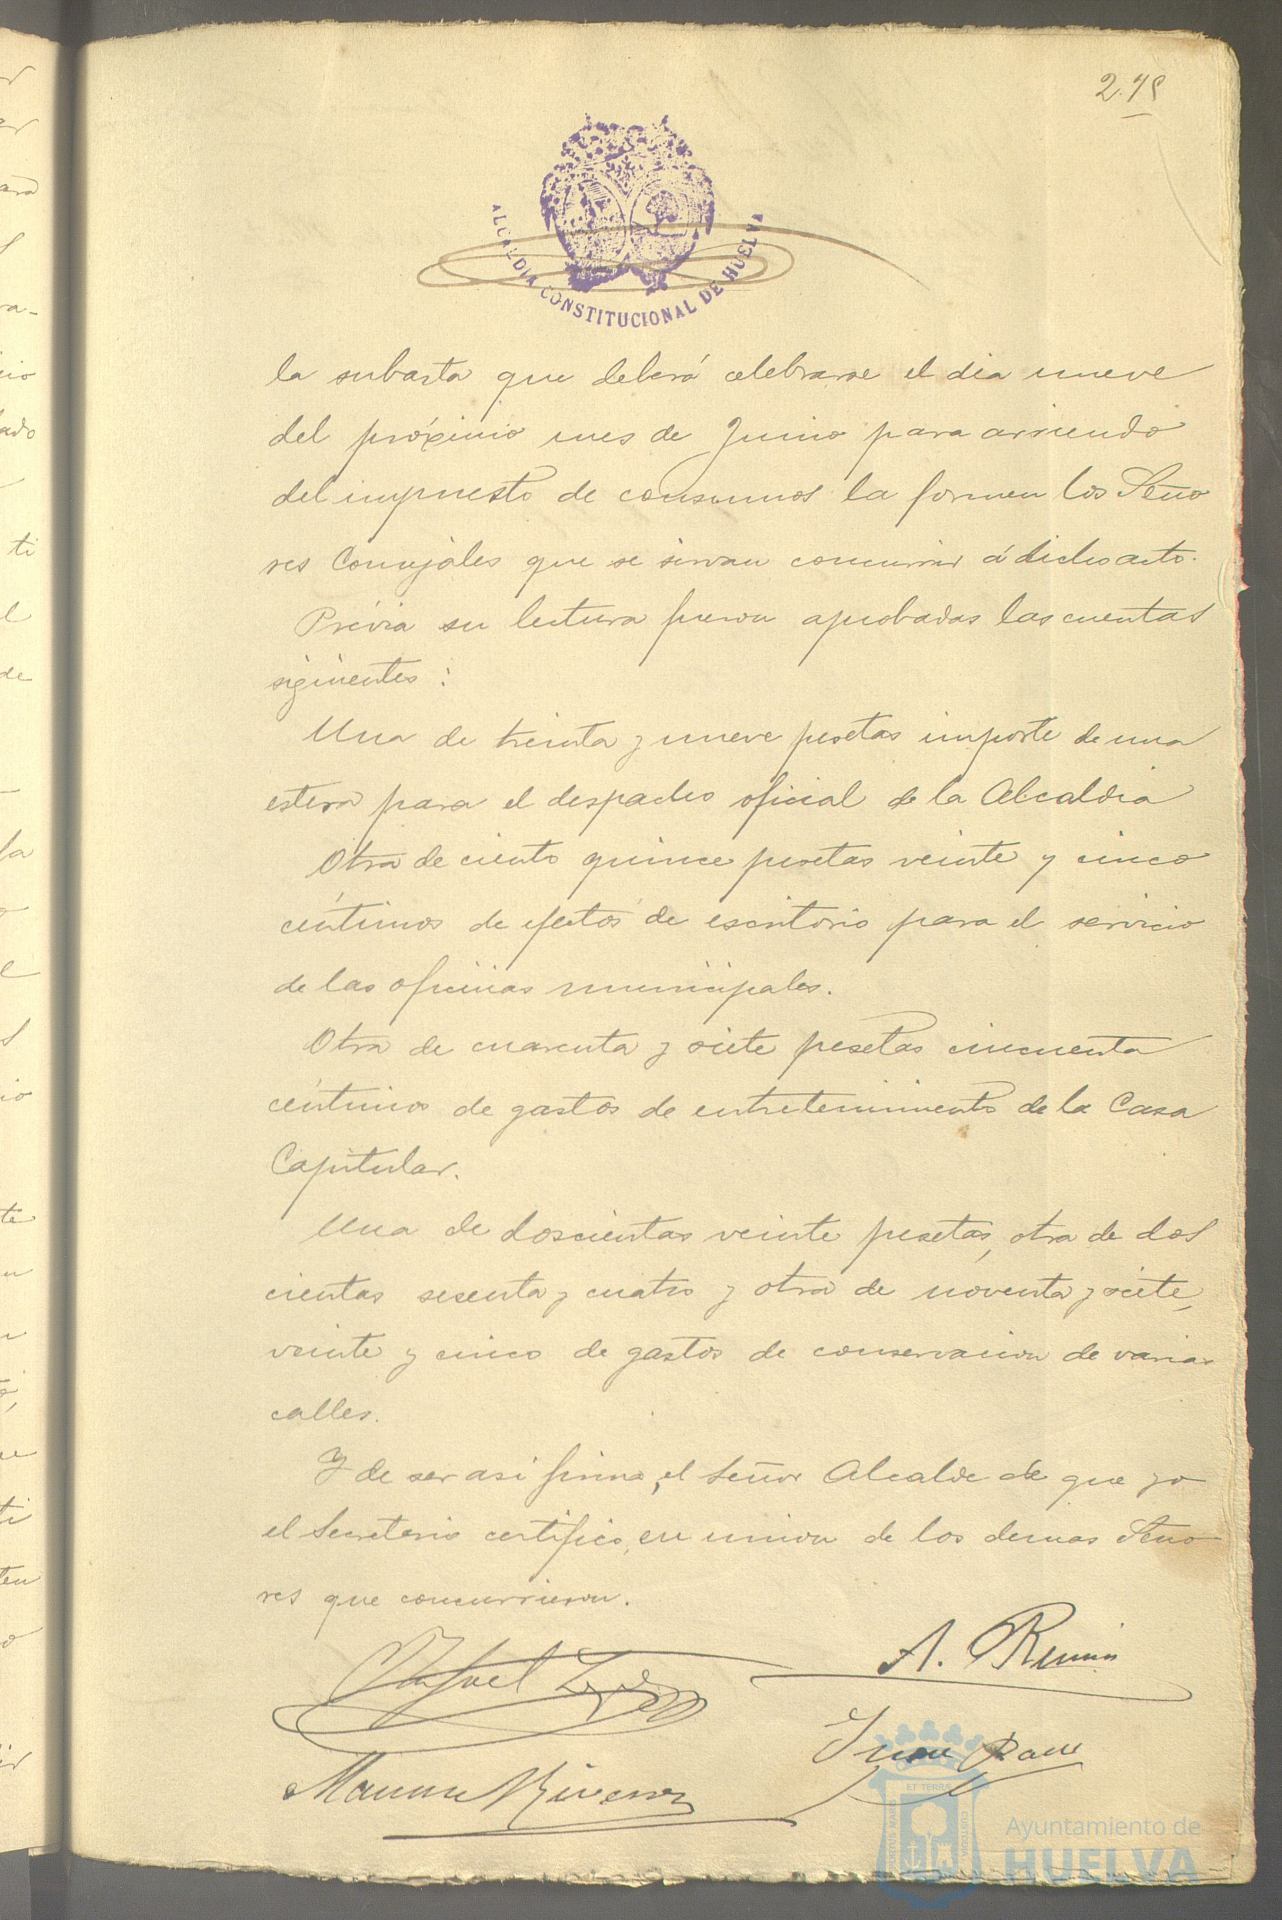 ALCALDIA CONSTITUCIONAL DE HUELVA
la subasta que deberá celebrarse el dia nueve
del próximo mes de Junio para arriendo
del impuesto de consumos la formen los Seño
res Concejales que se sirvan concurrir á dicho acto.
Prévia su lectura fueron aprobadas las cuentas
siguientes:
Una de treinta y nueve pesetas importe de una
estera para el despacho oficial de la Alcaldia
Otra de ciento quince pesetas veinte y cinco
céntimos de efectos de escritorio para el servicio
de las oficinas municipales.
Otra de cuarenta y siete pesetas cincuenta
céntimos de gastos de entretenimiento de la Casa
Capitular.
Una de doscientas veinte pesetas, otra de dos
cientas sesenta y cuatro y otra de noventa y siete,
veinte y cinco de gastos de conservacion de varias
calles.
Y de ser asi firma, el Señor Alcalde de que yo
el Secretario certifico, en union de los demas Seño
res que concurrieron.
A.
Juan
Manuel
ET TERRÆ
Ayuntamiento de
HUELVA